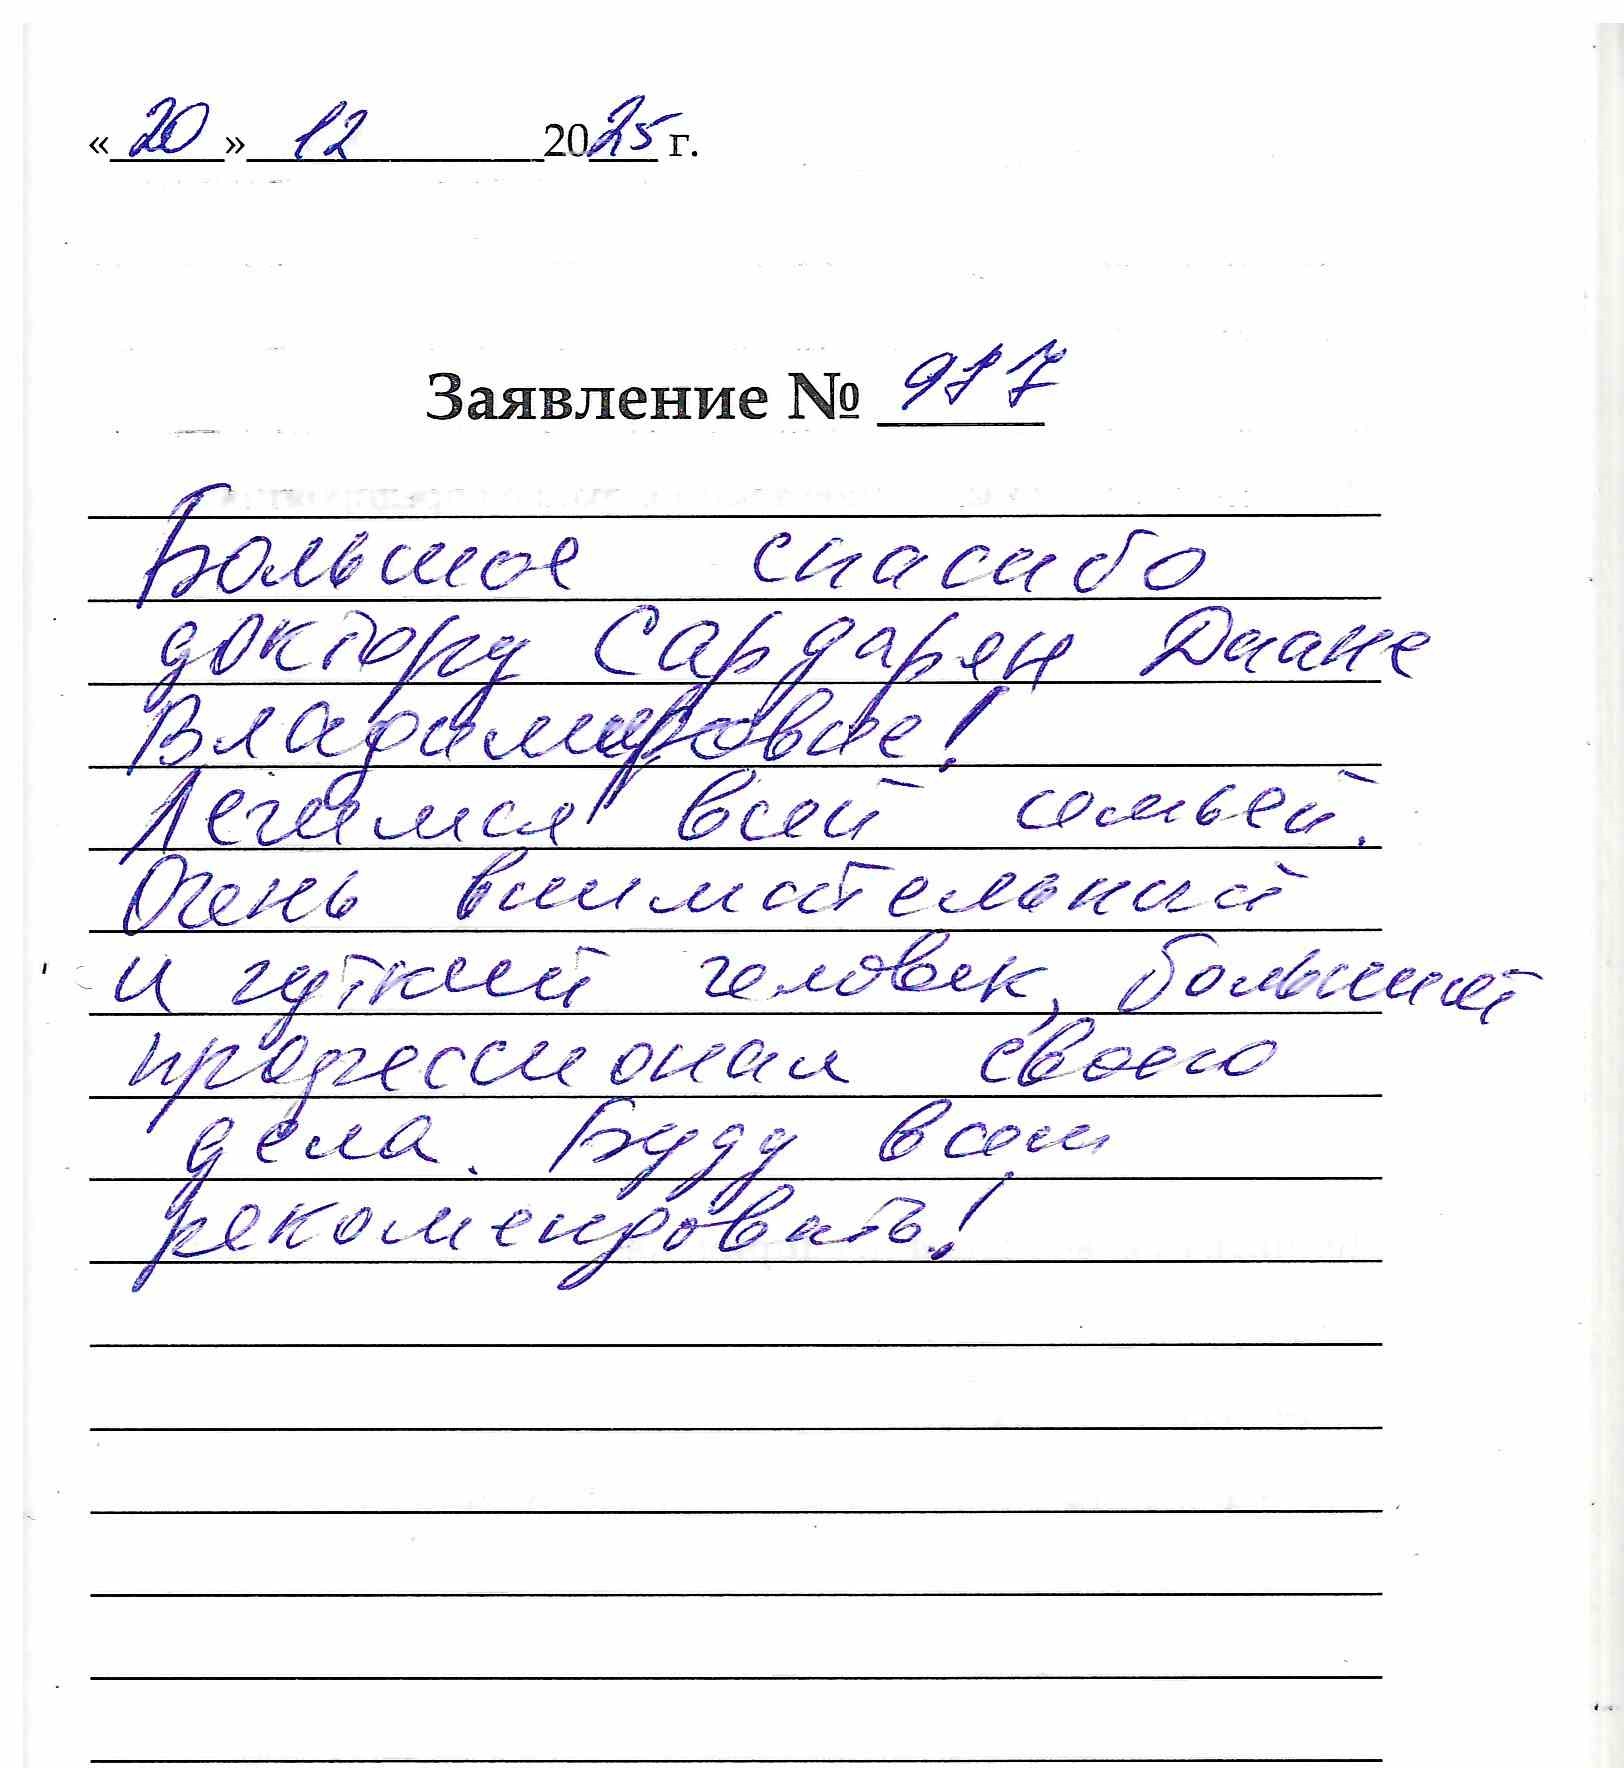 «20» 12 2025 г.
Заявление № 977
Большое спасибо
доктору Сардарян Диане
Владимировне!
Лечимся всей семьей.
Очень внимательный
и чуткий человек, большой
профессионал своего
дела. Буду всем
рекомендовать!